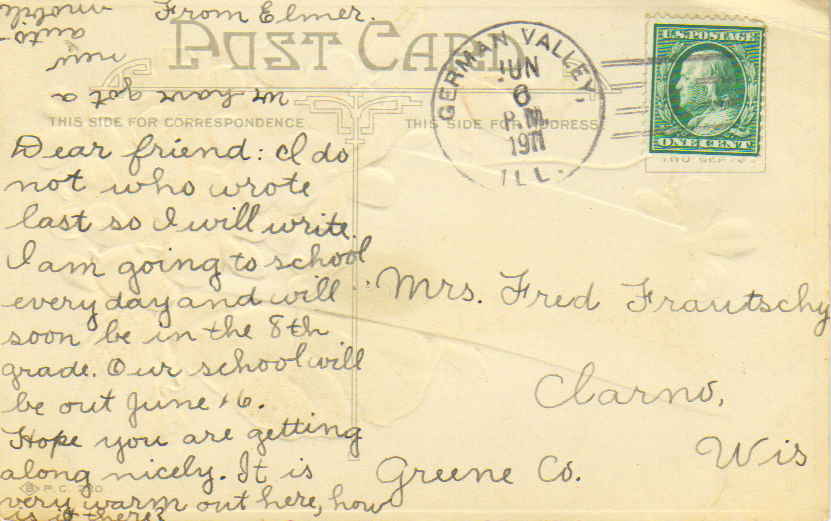 From Elmer.
We have got a
new
auto-
mobile
POST CARD
GERMAN VALLEY,
JUN
6
P.M.
1911
ILL.
U.S. POSTAGE
ONE CENT
THIS SIDE FOR CORRESPONDENCE
THIS SIDE FOR ADDRESS
Dear friend: I do
not who wrote
last so I will write.
I am going to school
every day and will
soon be in the 8th
grade. Our school will
be out June 16.
Hope you are getting
along nicely. It is
very warm out here, how
is it there?
Mrs. Fred Frautschy
Clarno,
Wis
Greene Co.